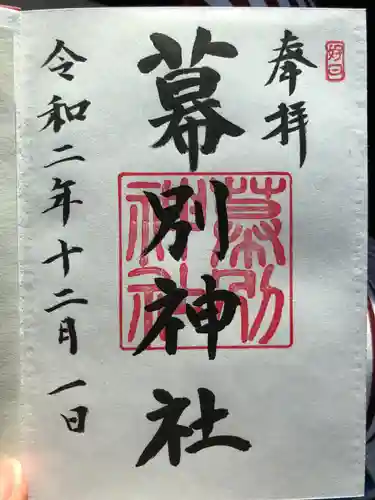 奉拝
幕別神社
幕別
神社
令和二年十二月一日